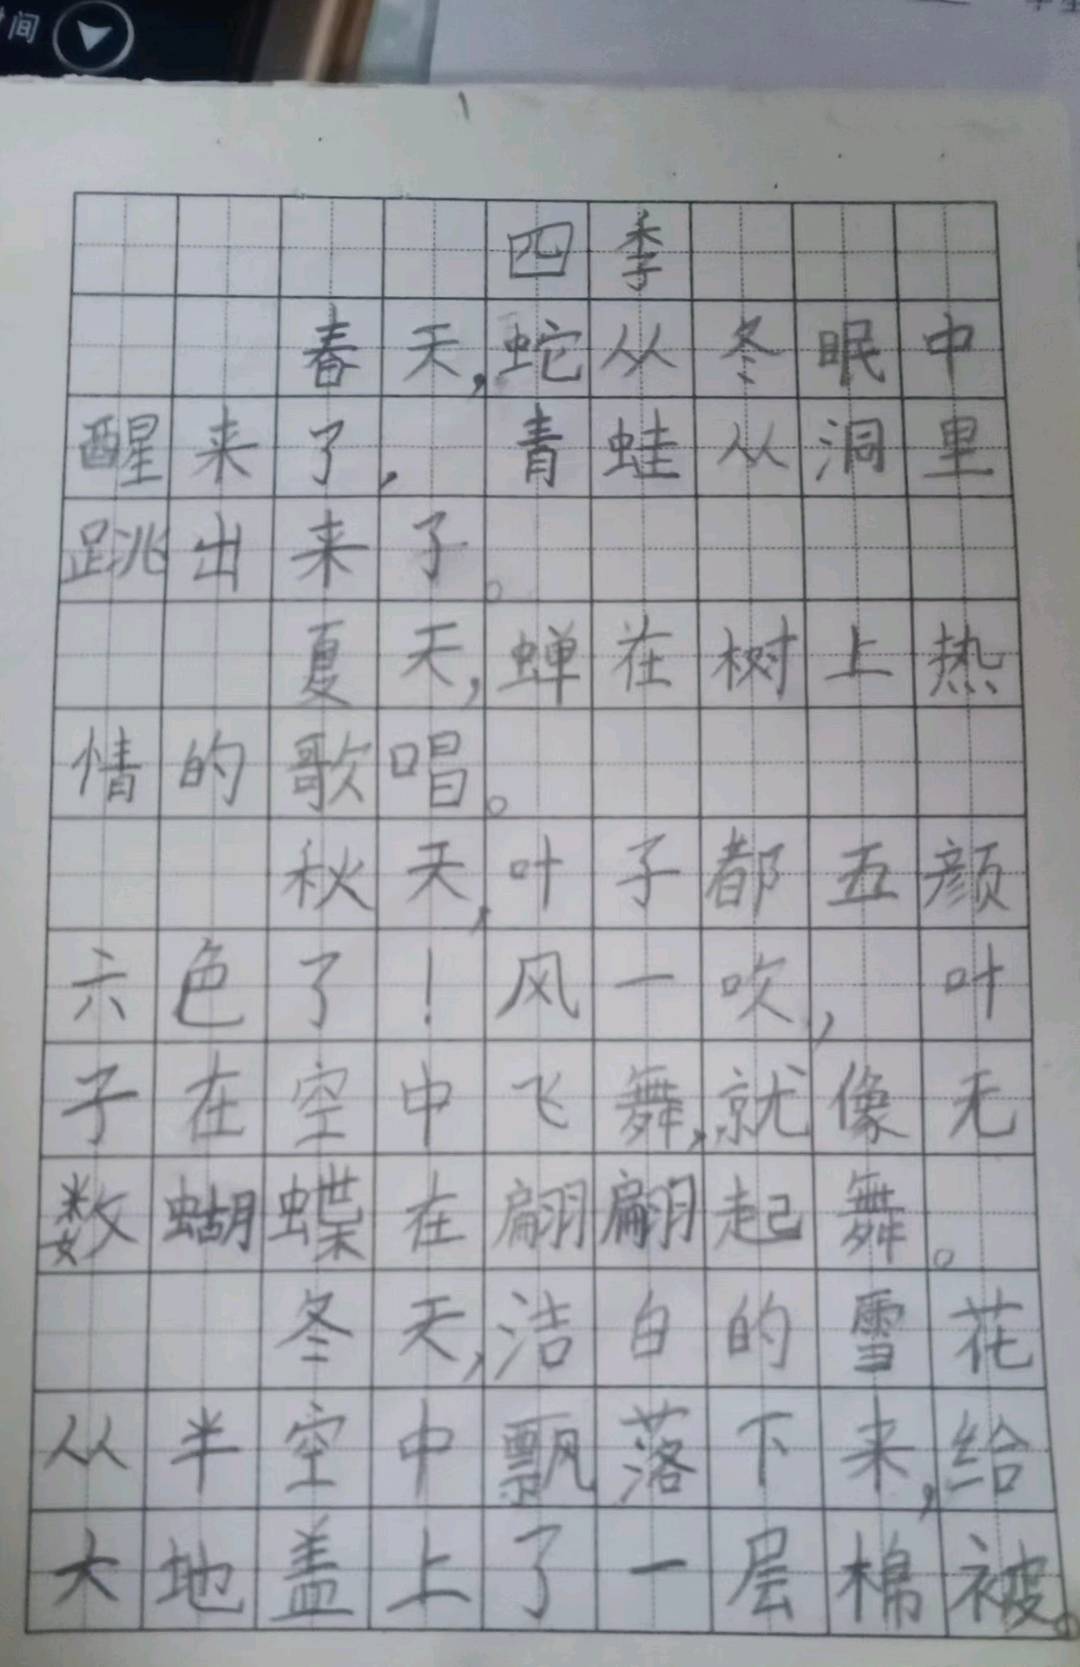 间
四季
春天,蛇从冬眠中
醒来了,青蛙从洞里
跳出来了。
夏天,蝉在树上热
情的歌唱。
秋天,叶子都五颜
六色了!风一吹,叶
子在空中飞舞,就像无
数蝴蝶在翩翩起舞。
冬天,洁白的雪花
从半空中飘落下来,给
大地盖上了一层棉被。